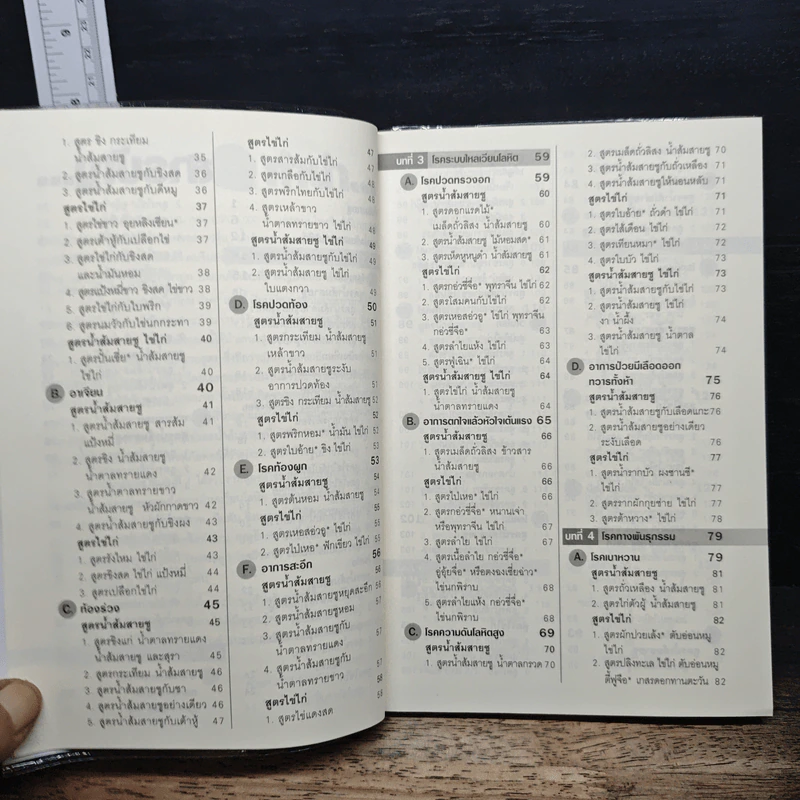 1. สูตร ขิง กระเทียม
น้ำส้มสายชู 35
2. สูตรน้ำส้มสายชูกับขิงสด 36
3. สูตรน้ำส้มสายชูกับดีหมู 36
สูตรไข่ไก่ 37
1. สูตรไข่ขาว อุยหลิงเซียน* 37
2. สูตรเต้าหู้กับเปลือกไข่ 37
3. สูตรไข่ไก่กับขิงสด
และน้ำมันหอม 38
4. สูตรแป้งหมี่ขาว ขิงสด ไข่ขาว 38
5. สูตรไข่ไก่กับใบพริก 39
6. สูตรนมวัวกับไข่นกกระทา 39
สูตรน้ำส้มสายชู ไข่ไก่ 40
1. สูตรปั้นเซี่ย* น้ำส้มสายชู
ไข่ไก่ 40
B. อาเจียน 40
สูตรน้ำส้มสายชู 41
1. สูตรน้ำส้มสายชู สารส้ม
แป้งหมี่ 41
2. สูตรขิง น้ำส้มสายชู
น้ำตาลทรายแดง 42
3. สูตรน้ำตาลทรายขาว
น้ำส้มสายชู หัวผักกาดขาว 42
4. สูตรน้ำส้มสายชูกับขิงผง 43
สูตรไข่ไก่ 43
1. สูตรรังไหม ไข่ไก่ 43
2. สูตรขิงสด ไข่ไก่ แป้งหมี่ 44
3. สูตรเปลือกไข่ไก่ 44
C. ท้องร่วง 45
สูตรน้ำส้มสายชู 45
1. สูตรขิงแก่ น้ำตาลทรายแดง
น้ำส้มสายชู และสุรา 45
2. สูตรกระเทียม น้ำส้มสายชู 46
3. สูตรน้ำส้มสายชูกับชา 46
4. สูตรน้ำส้มสายชูอย่างเดียว 46
5. สูตรน้ำส้มสายชูกับเต้าหู้ 47
สูตรไข่ไก่ 47
1. สูตรสารส้มกับไข่ไก่ 47
2. สูตรเกลือกับไข่ไก่ 48
3. สูตรพริกไทยกับไข่ไก่ 48
4. สูตรเหล้าขาว
น้ำตาลทรายขาว ไข่ไก่ 48
สูตรน้ำส้มสายชู ไข่ไก่ 49
1. สูตรน้ำส้มสายชูกับไข่ไก่ 49
2. สูตรน้ำส้มสายชู ไข่ไก่
ใบแตงกวา 49
D. โรคปวดท้อง 50
สูตรน้ำส้มสายชู 51
1. สูตรกระเทียม น้ำส้มสายชู
เหล้าขาว 51
2. สูตรน้ำส้มสายชูระงับ
อาการปวดท้อง 51
3. สูตรขิง กระเทียม น้ำส้มสายชู 52
สูตรไข่ไก่ 52
1. สูตรพริกหอม* น้ำมัน ไข่ไก่ 52
2. สูตรใบอ้าย* ขิง ไข่ไก่ 52
E. โรคท้องผูก 53
สูตรน้ำส้มสายชู 54
1. สูตรต้นหอม น้ำส้มสายชู 54
สูตรไข่ไก่ 54
1. สูตรเหอสอ่วอู* ไข่ไก่ 55
2. สูตรไปเหอ* ฟักเขียว ไข่ไก่ 55
F. อาการสะอึก 56
สูตรน้ำส้มสายชู 56
1. สูตรน้ำส้มสายชูหยุดสะอึก 56
2. สูตรน้ำส้มสายชูหอม
3. สูตรน้ำส้มสายชูกับ
น้ำตาลทรายแดง 57
4. สูตรน้ำส้มสายชูกับ
น้ำตาลทรายขาว
สูตรไข่ไก่ 58
1. สูตรไข่แดงสด 58
บทที่ 3 โรคระบบไหลเวียนโลหิต 59
A. โรคปวดทรวงอก 59
สูตรน้ำส้มสายชู 60
1. สูตรดอกแรดไม้*
เมล็ดถั่วลิสง น้ำส้มสายชู 60
2. สูตรน้ำส้มสายชู ไม้หอมสด* 61
3. สูตรเห็ดหูหนูดำ น้ำส้มสายชู 61
สูตรไข่ไก่ 62
1. สูตรก่อวี่ซี่จื่อ* พุทราจีน ไข่ไก่ 62
2. สูตรโสมคนกับไข่ไก่ 62
3. สูตรเหอสอ่วอู* ไข่ไก่ พุทราจีน
ก่อวี่ซี่จื่อ* 63
4. สูตรลำไยแห้ง ไข่ไก่ 63
5. สูตรฟูเฉิน* ไข่ไก่ 64
สูตรน้ำส้มสายชู ไข่ไก่ 64
1. สูตรไข่ไก่ น้ำส้มสายชู
น้ำตาลทรายแดง 64
B. อาการตกใจแล้วหัวใจเต้นแรง 65
สูตรน้ำส้มสายชู 66
1. สูตรเมล็ดถั่วลิสง ข้าวสาร
น้ำส้มสายชู 66
สูตรไข่ไก่ 66
1. สูตรไปเหอ* ไข่ไก่ 67
2. สูตรก่อวี่ซี่จื่อ* หนานเจ่า
หรือพุทราจีน ไข่ไก่ 67
3. สูตรลำไย ไข่ไก่ 67
4. สูตรเนื้อลำไย ก่อวี่ซี่จื่อ*
อู่อุ้ยจื่อ* หรือตงฉงเซี่ยฉ่าว*
ไข่นกพิราบ 68
5. สูตรลำไยแห้ง ก่อวี่ซี่จื่อ*
ไข่นกพิราบ 68
C. โรคความดันโลหิตสูง 69
สูตรน้ำส้มสายชู 70
1. สูตรน้ำส้มสายชู น้ำตาลกรวด 70
2. สูตรเมล็ดถั่วลิสง น้ำส้มสายชู 70
3. สูตรน้ำส้มสายชูกับถั่วเหลือง 71
4. สูตรน้ำส้มสายชูให้นอนหลับ 71
สูตรไข่ไก่ 71
1. สูตรใบอ้าย* ถั่วดำ ไข่ไก่ 71
2. สูตรไส้เดือน ไข่ไก่ 72
3. สูตรเทียนหมา* ไข่ไก่ 72
4. สูตรใบบัว ไข่ไก่ 73
สูตรน้ำส้มสายชู ไข่ไก่ 73
1. สูตรน้ำส้มสายชูกับไข่ไก่ 73
2. สูตรน้ำส้มสายชู ไข่ไก่
งา น้ำผึ้ง 74
3. สูตรน้ำส้มสายชู น้ำตาล
ไข่ไก่ 74
D. อาการป่วยมีเลือดออก
ทวารทั้งห้า 75
สูตรน้ำส้มสายชู 76
1. สูตรน้ำส้มสายชูกับเลือดแกะ 76
2. สูตรน้ำส้มสายชูอย่างเดียว
ระงับเลือด 76
สูตรไข่ไก่ 77
1. สูตรน้ำรากบัว ผงซานชี*
ไข่ไก่ 77
2. สูตรรากผักกุยช่าย ไข่ไก่ 77
3. สูตรต้าหวาง* ไข่ไก่ 78
บทที่ 4 โรคทางพันธุกรรม 79
A. โรคเบาหวาน 79
สูตรน้ำส้มสายชู 81
1. สูตรถั่วเหลือง น้ำส้มสายชู 81
2. สูตรไก่ตัวผู้ น้ำส้มสายชู 81
สูตรไข่ไก่ 82
1. สูตรผักปวยเล้ง* ตับอ่อนหมู
ไข่ไก่ 82
2. สูตรปลิงทะเล ไข่ไก่ ตับอ่อนหมู
ตี้ฟูจื่อ* เกสรดอกทานตะวัน 82